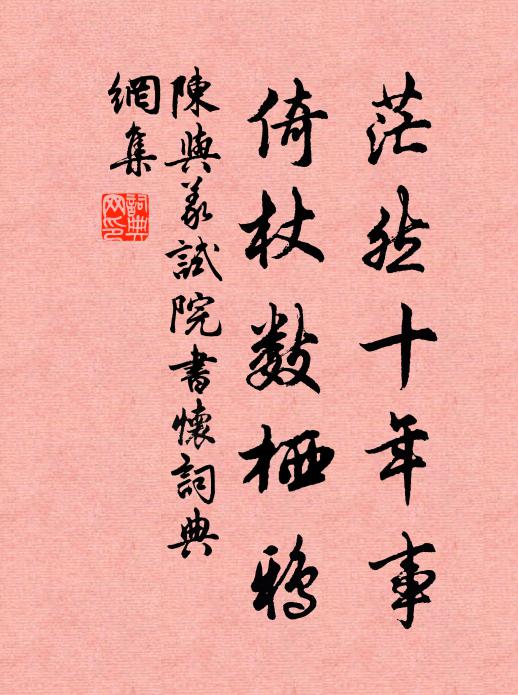 茫然十年事
倚杖數栖鴉
陳與義試院書懷詞典
網集
詞典
网印